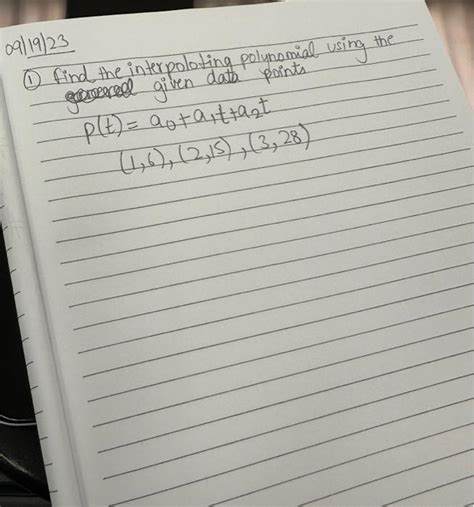 09/19/23
① find the interpolating polynomial using the
given data points
p(t) = a₀+a₁t+a₂t
(1,6), (2,15), (3,28)